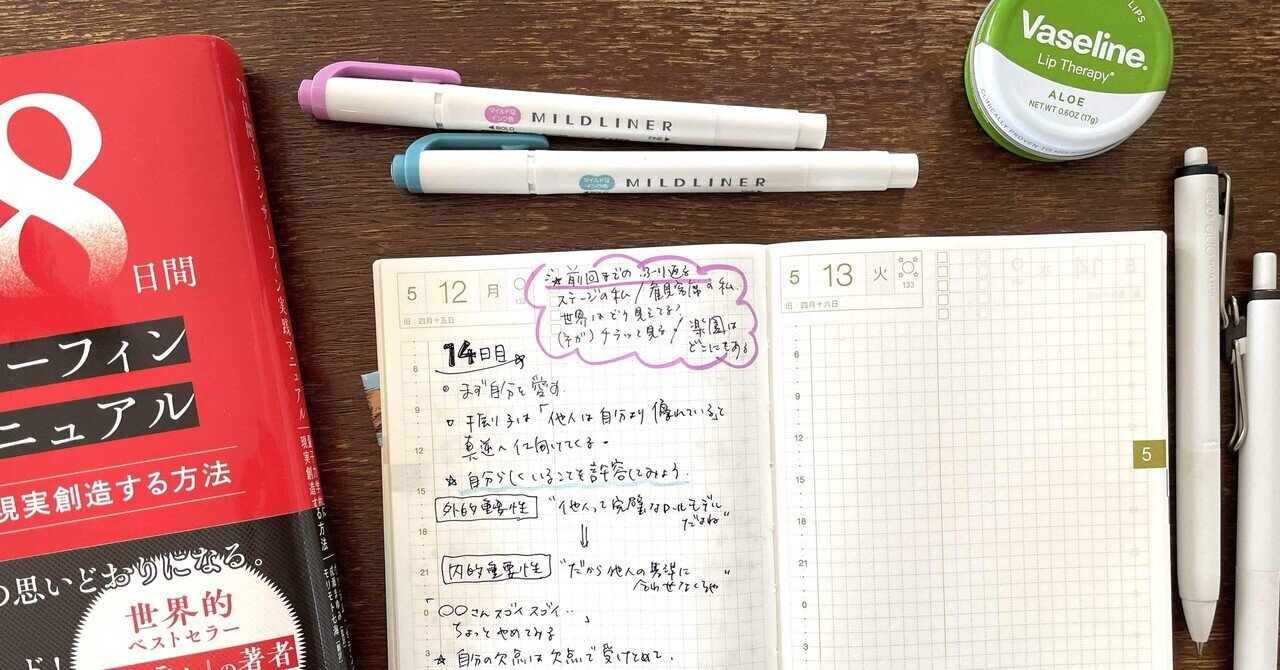 8
日間
ーフィン
ニュアル
現実創造する方法
の思いどおりになる。
世界的
ベストセラー
の著者
マイルドな
インク色
MILDLINER
BOLD
FINE
マイルドな
インク色
MILDLINER
Vaseline.
Lip Therapy
ALOE
NETWT 0.6OZ (17g)
LIPS
5 12 月
132
旧：四月十五日
前回までのふり返る
ステージの私 / 観客席の私
世界はどう見えてる？
チラッと見る / 楽園は
どこにもある
14日目
まず自分を愛す
手振り子は「他人は自分より優れている」と
真逆へ仕向けてくる。
☆ 自分らしくいることを許容してみよう
外的重要性 "他人って完璧なロールモデル
だよね"
⇓
内的重要性 "だから他人の基準に
合わせなくちゃ"
「〇〇さんスゴイスゴイ…」
ちょっとやめてみる
☆ 自分の欠点は欠点で受けとめて、
6
9
12
15
18
21
0
3
5 13 火
133
旧：四月十六日
6
9
12
15
18
21
0
3
5